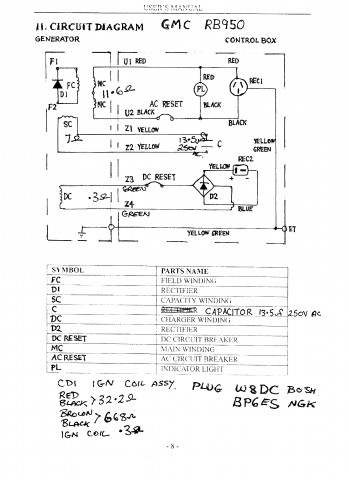 USER'S MANUAL
11. CIRCUIT DIAGRAM GMC RB950
GENERATOR CONTROL BOX
F1 U1 RED RED
RED
FC MC PL REC1
D1 11.6Ω
MC BLACK
F2 AC RESET
U2 BLACK BLACK
SC Z1 YELLOW
7Ω 13.5µ C YELLOW
250V GREEN
Z2 YELLOW AC
REC2
YELLOW
Z3 DC RESET
GREEN
DC .3Ω D2
Z4 BLUE
GREEN
ET
YELLOW GREEN
SYMBOL PARTS NAME
FC FIELD WINDING
D1 RECTIFIER
SC CAPACITY WINDING
C CAPACITOR 13.5µf 250V AC
DC CHARGER WINDING
D2 RECTIFIER
DC RESET DC CIRCUIT BREAKER
MC MAIN WINDING
AC RESET AC CIRCUIT BREAKER
PL INDICATOR LIGHT
CDI IGN COIL ASSY. PLUG W8DC BOSH
RED
BLACK > 32.2Ω BP6ES NGK
BROWN
BLACK > 668Ω
IGN COIL .3Ω
- 8 -